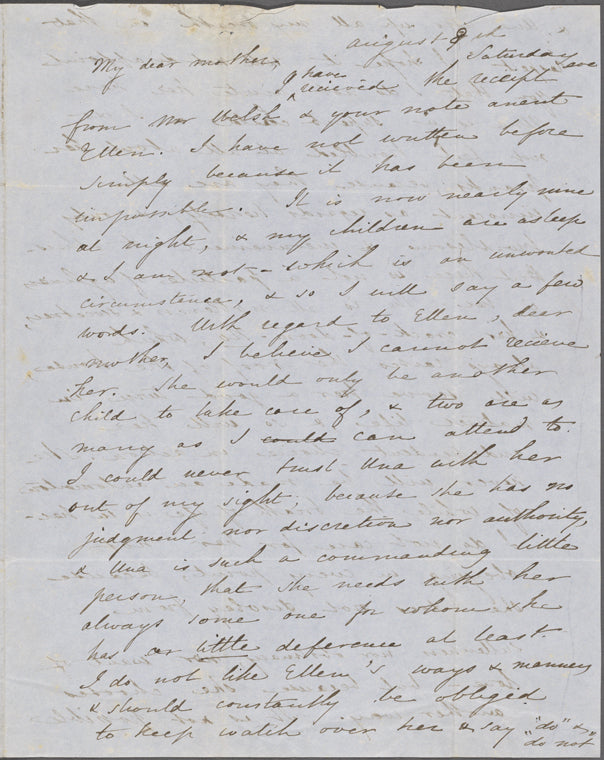 August 8th
Saturday eve
My dear mother,
I have recieved the receipt
from Mr Welsh & your note anent
Ellen. I have not written before
simply because it has been
impossible. It is now nearly nine
at night, & my children are asleep
& I am not - which is an unwonted
circumstance, & so I will say a few
words. With regard to Ellen, dear
mother, I believe I cannot recieve
her. She would only be another
child to take care of, & two are as
many as I could can attend to.
I could never trust Una with her
out of my sight, because she has no
judgment nor discretion nor authority,
& Una is such a commanding little
person, that she needs with her
always some one for whom she
has a little deference at least.
I do not like Ellen's ways & manners
& should constantly be obliged
to keep watch over her & say "do" &
"do not"